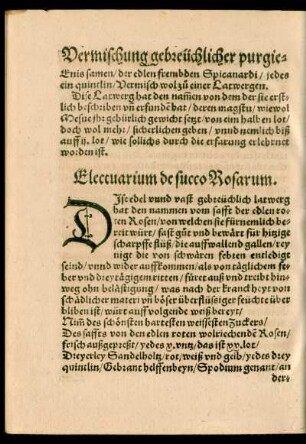 Vermischung gebreüchlicher purgie-
Enis samen/ der edlen frembden Spicanardi/ jedes
ein quintlin/ Vermisch wol zů einer Latwergen.
Dise Latwerg hat den nam̃en von dem der sie erst-
lich beschriben vñ erfunde hat/ deren magstu/ wiewol
Mesue jhr gebürlich gewicht setzt/ von eim halben lot/
doch wol mehr/ sicherlichen geben/ vnnd nemlich biß
auff ij. lot/ wie sollichs durch die erfarung erlehrnet
worden ist.
Electuarium de succo Rosarum.
DIse edel vnnd vast gebreüchlich latwerg
hat den nammen vom safft der edlen ro-
ten Rosen/ von welchen sie fürnemlich be-
reit würt/ fast gůt vnd bewärt für hitzige
scharpffe flüß/ die auffwallend gallen/ rey
nigt die von schwären febren entledigt
seind/ vnnd wider auffkommen/ als von täglichem fe-
ber vnd dreytägigem ritten/ füret auß vnd treibt hin-
weg ohn belästigung/ was nach der kranckheyt von
schädlicher materi vñ böser überflüssiger feuchte über
bliben ist/ würt auff volgende weiß bereyt/
Nim̃ des schönsten hartesten weissesten Zuckers/
Des saffts von den edlen roten wolriechendẽ Rosen/
frisch außgepreßt/ yedes x. vntz/ das ist xx. lot/
Dreyerley Sandelholtz/ rot/ weiß vnd gelb/ yedes drey
quintlin/ Gebrant helffenbeyn/ Spodium genant/ an
der-